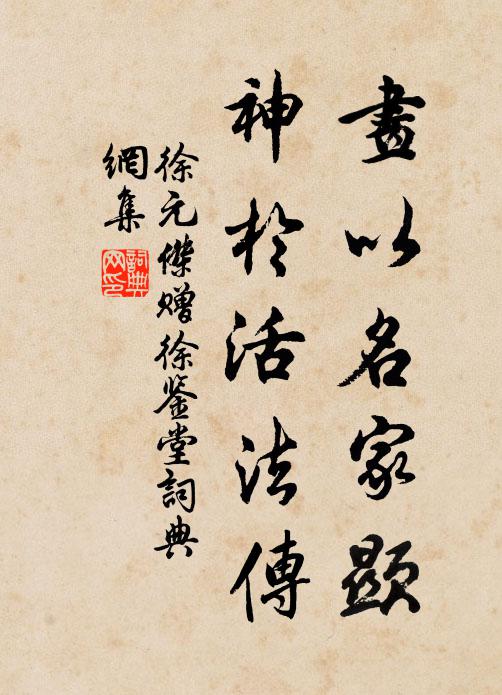 畫以名家顯
神於活法傳
徐元傑贈徐鉴堂詞典
網集
詞典
网印